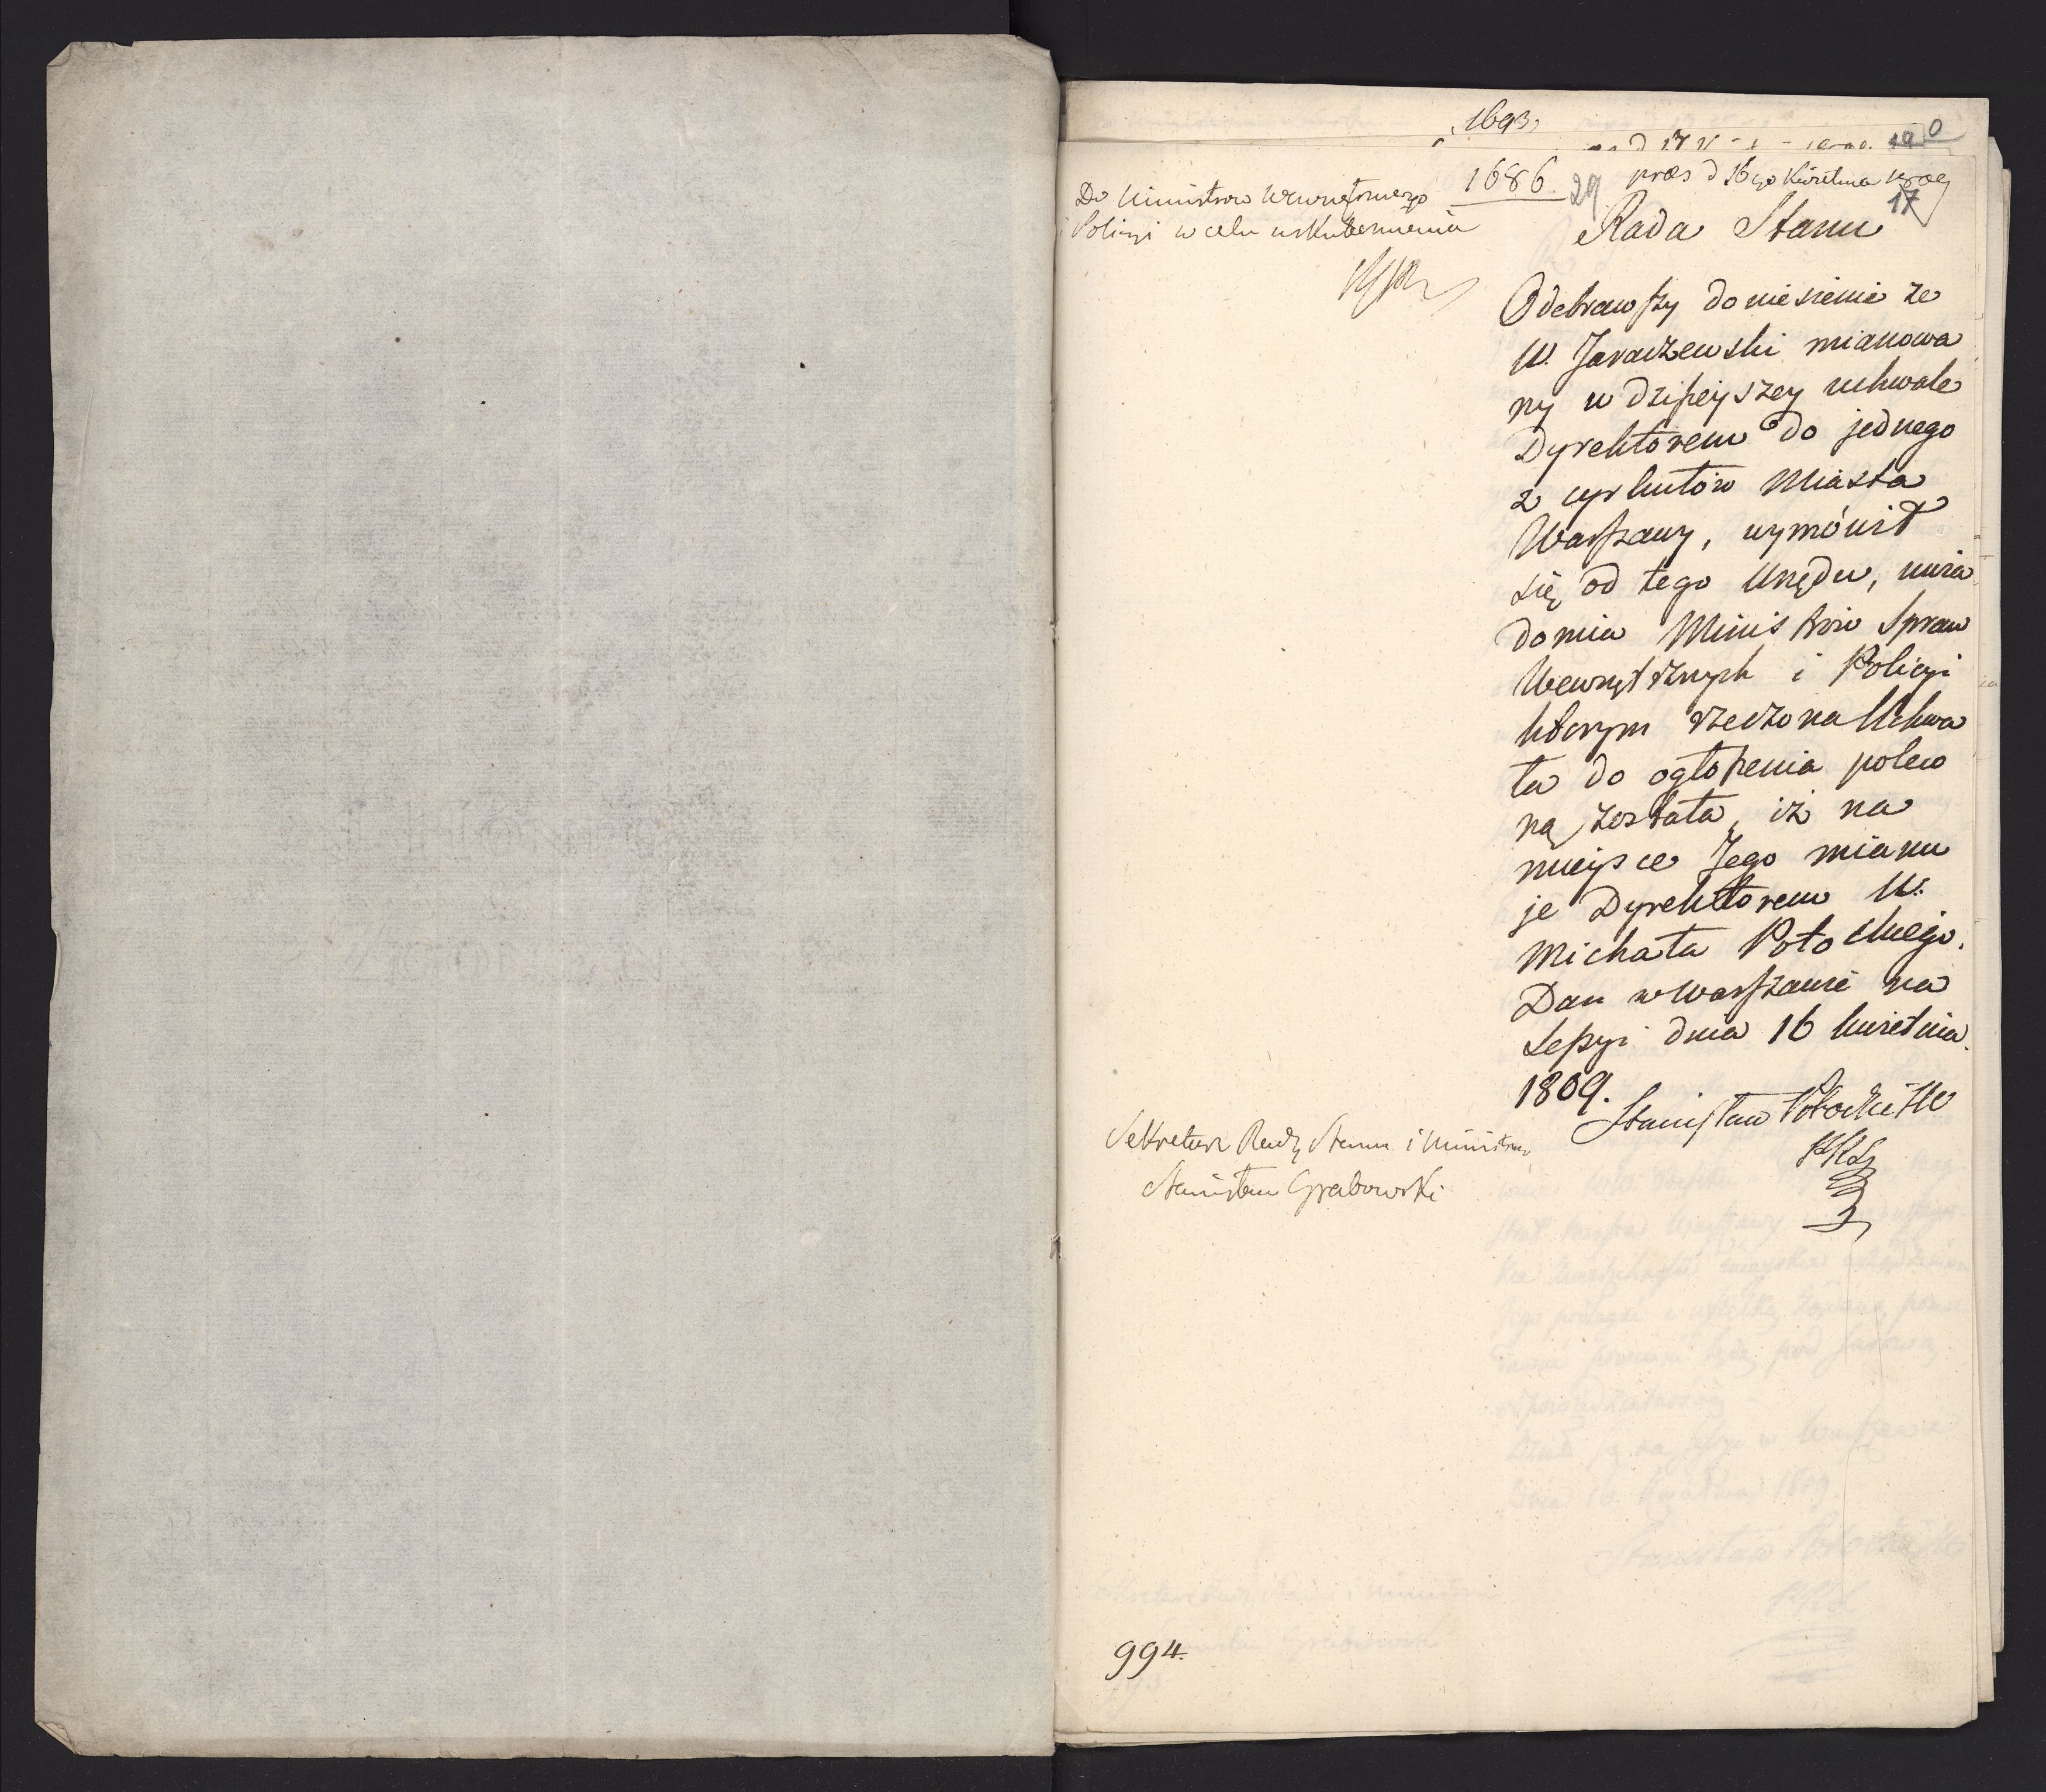 1693
1686. 29 præs d 16go Kwietnia 1809
17
Do Ministrów Wewnętrznego
i Policyi w celu uskutecznienia
Rada Stanu
Odebrawszy doniesienie że
W. Jaraczewski mianowa
ny w dzisieyszey uchwale
Dyrektorem do jednego
z cyrkułów Miasta
Warszawy, wymówił
się od tego Urzędu, uwia
domia Ministrów Spraw
Wewnętrznych i Policyi
którym rzeczona Uchwa
ła do ogłoszenia poleco
ną została, iż na
mieysce Jego mianu
je Dyrektorem W.
Michała Potockiego.
Dan w Warszawie na
Sessyi dnia 16 kwietnia
1809.
Stanisław Potocki
Sekretarz Rady Stanu i Ministrów
Stanisław Grabowski
994.